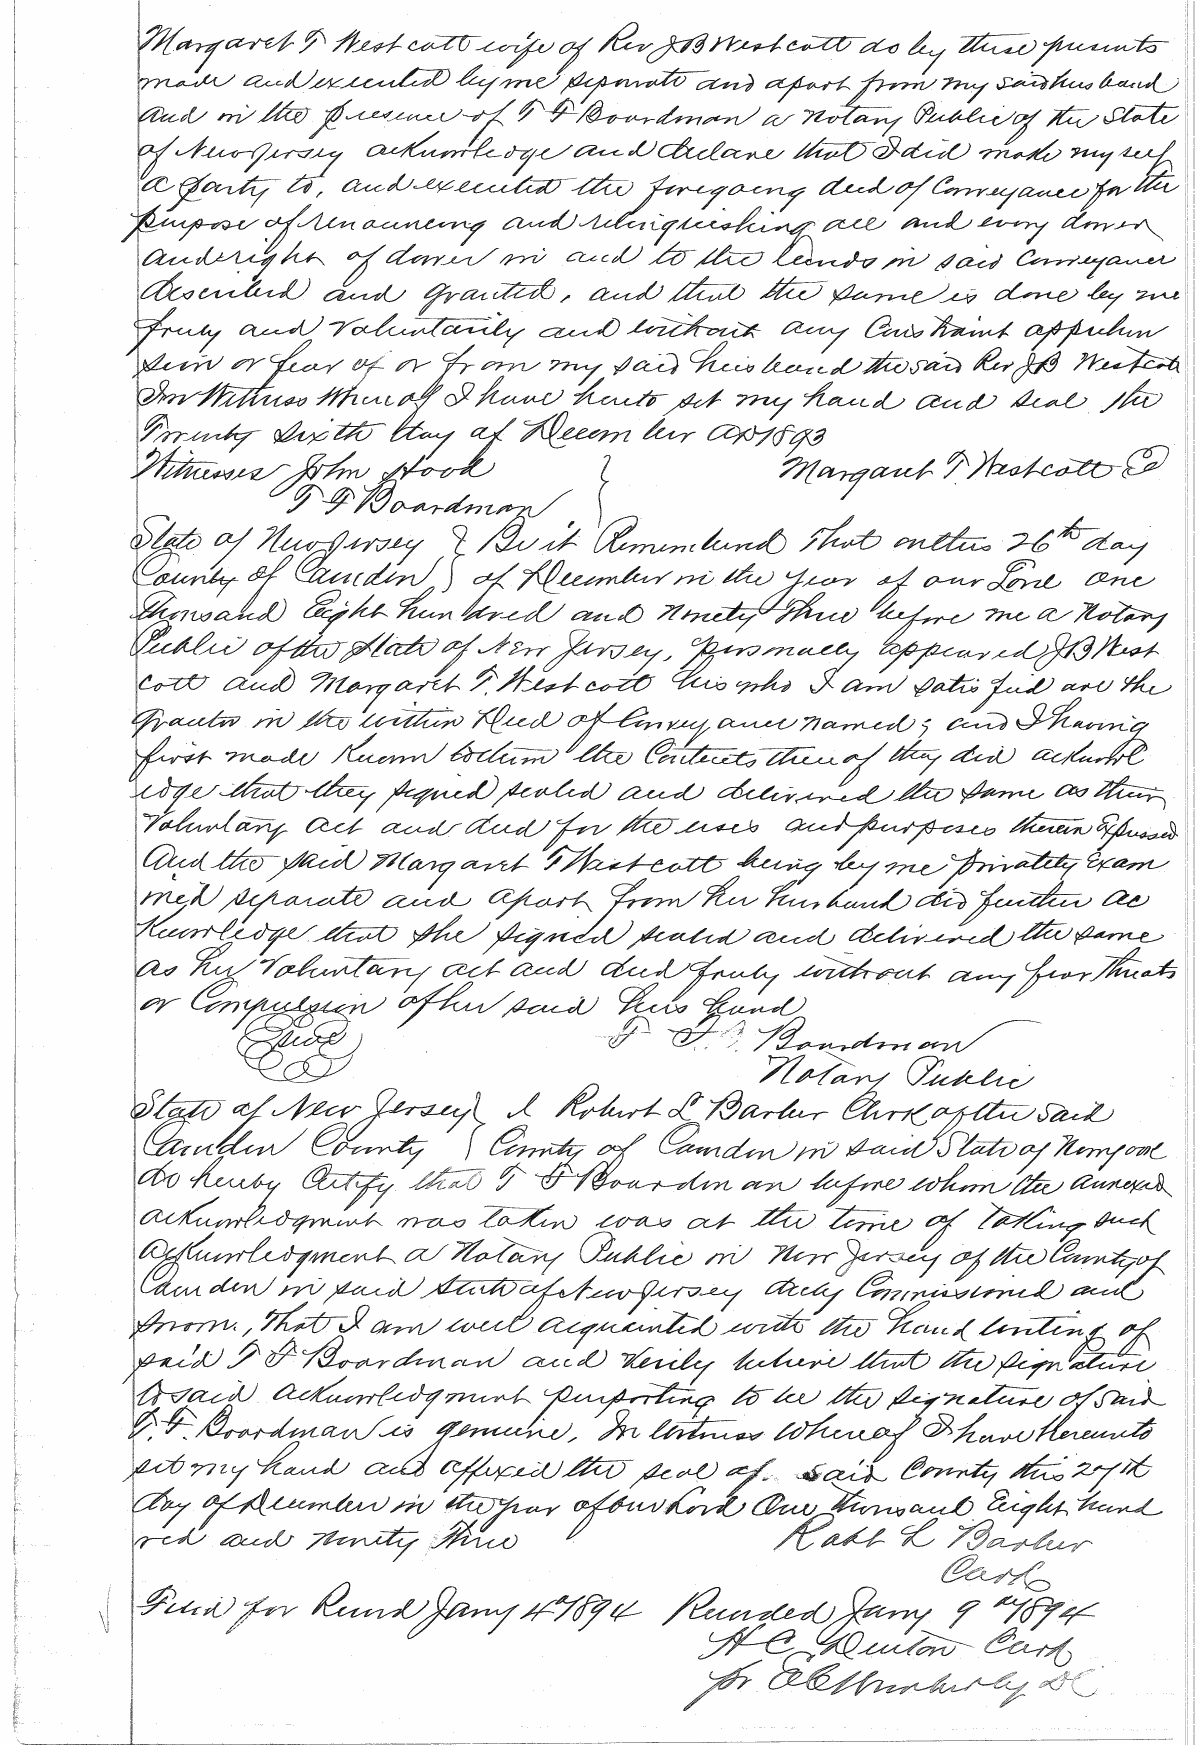 Margaret T Westcott wife of Rev J B Westcott do by these presents
made and executed by me separate and apart from my said husband
and in the presence of T F Boardman a Notary Public of the State
of New Jersey acknowledge and declare that I did make myself
a party to, and executed the foregoing deed of Conveyance for the
purpose of renouncing and relinquishing all and every dower
and right of dower in and to the lands in said Conveyance
described and granted, and that the same is done by me
freely and voluntarily and without any Constraint apprehen
sion or fear of or from my said husband the said Rev J B Westcott
In Witness Whereof I have hereto set my hand and seal the
Twenty Sixth day of December AD 1893
Witnesses John Hood } Margaret T. Westcott
T F Boardman
State of New Jersey } Be it Remembered that on this 26th day
County of Camden } of December in the year of our Lord one
thousand Eight hundred and Ninety three before me a Notary
Public of the State of New Jersey, personally appeared J B West
cott and Margaret T. Westcott his who I am satisfied are the
grantors in the within Deed of Conveyance named; and I having
first made known to them the Contents thereof they did acknowl
edge that they signed sealed and delivered the same as their
Voluntary act and deed for the uses and purposes therein Expressed
And the said Margaret T Westcott being by me privately Exam
ined separate and apart from her husband did further ac
knowledge that she signed sealed and delivered the same
as her Voluntary act and deed freely without any fear threats
or Compulsion of her said husband
Seal T F. Boardman
Notary Public
State of New Jersey } I Robert L Barber Clerk of the said
Camden County } County of Camden in said State of New Jersey
do hereby Certify that T F Boardman before whom the annexed
acknowledgment was taken was at the time of taking such
acknowledgment a Notary Public in New Jersey of the County of
Camden in said State of New Jersey duly Commissioned and
sworn, That I am well acquainted with the hand writing of
said T F Boardman and verily believe that the signature
to said acknowledgment purporting to be the signature of said
T. F. Boardman is genuine, In Witness Whereof I have hereunto
set my hand and affixed the seal of said County this 27th
day of December in the year of our Lord One thousand Eight hund
red and Ninety three Robt L Barber
Clerk
Filed for Record Jany 4th 1894 Recorded Jany 9th 1894
H C Denton Clerk
pr DC